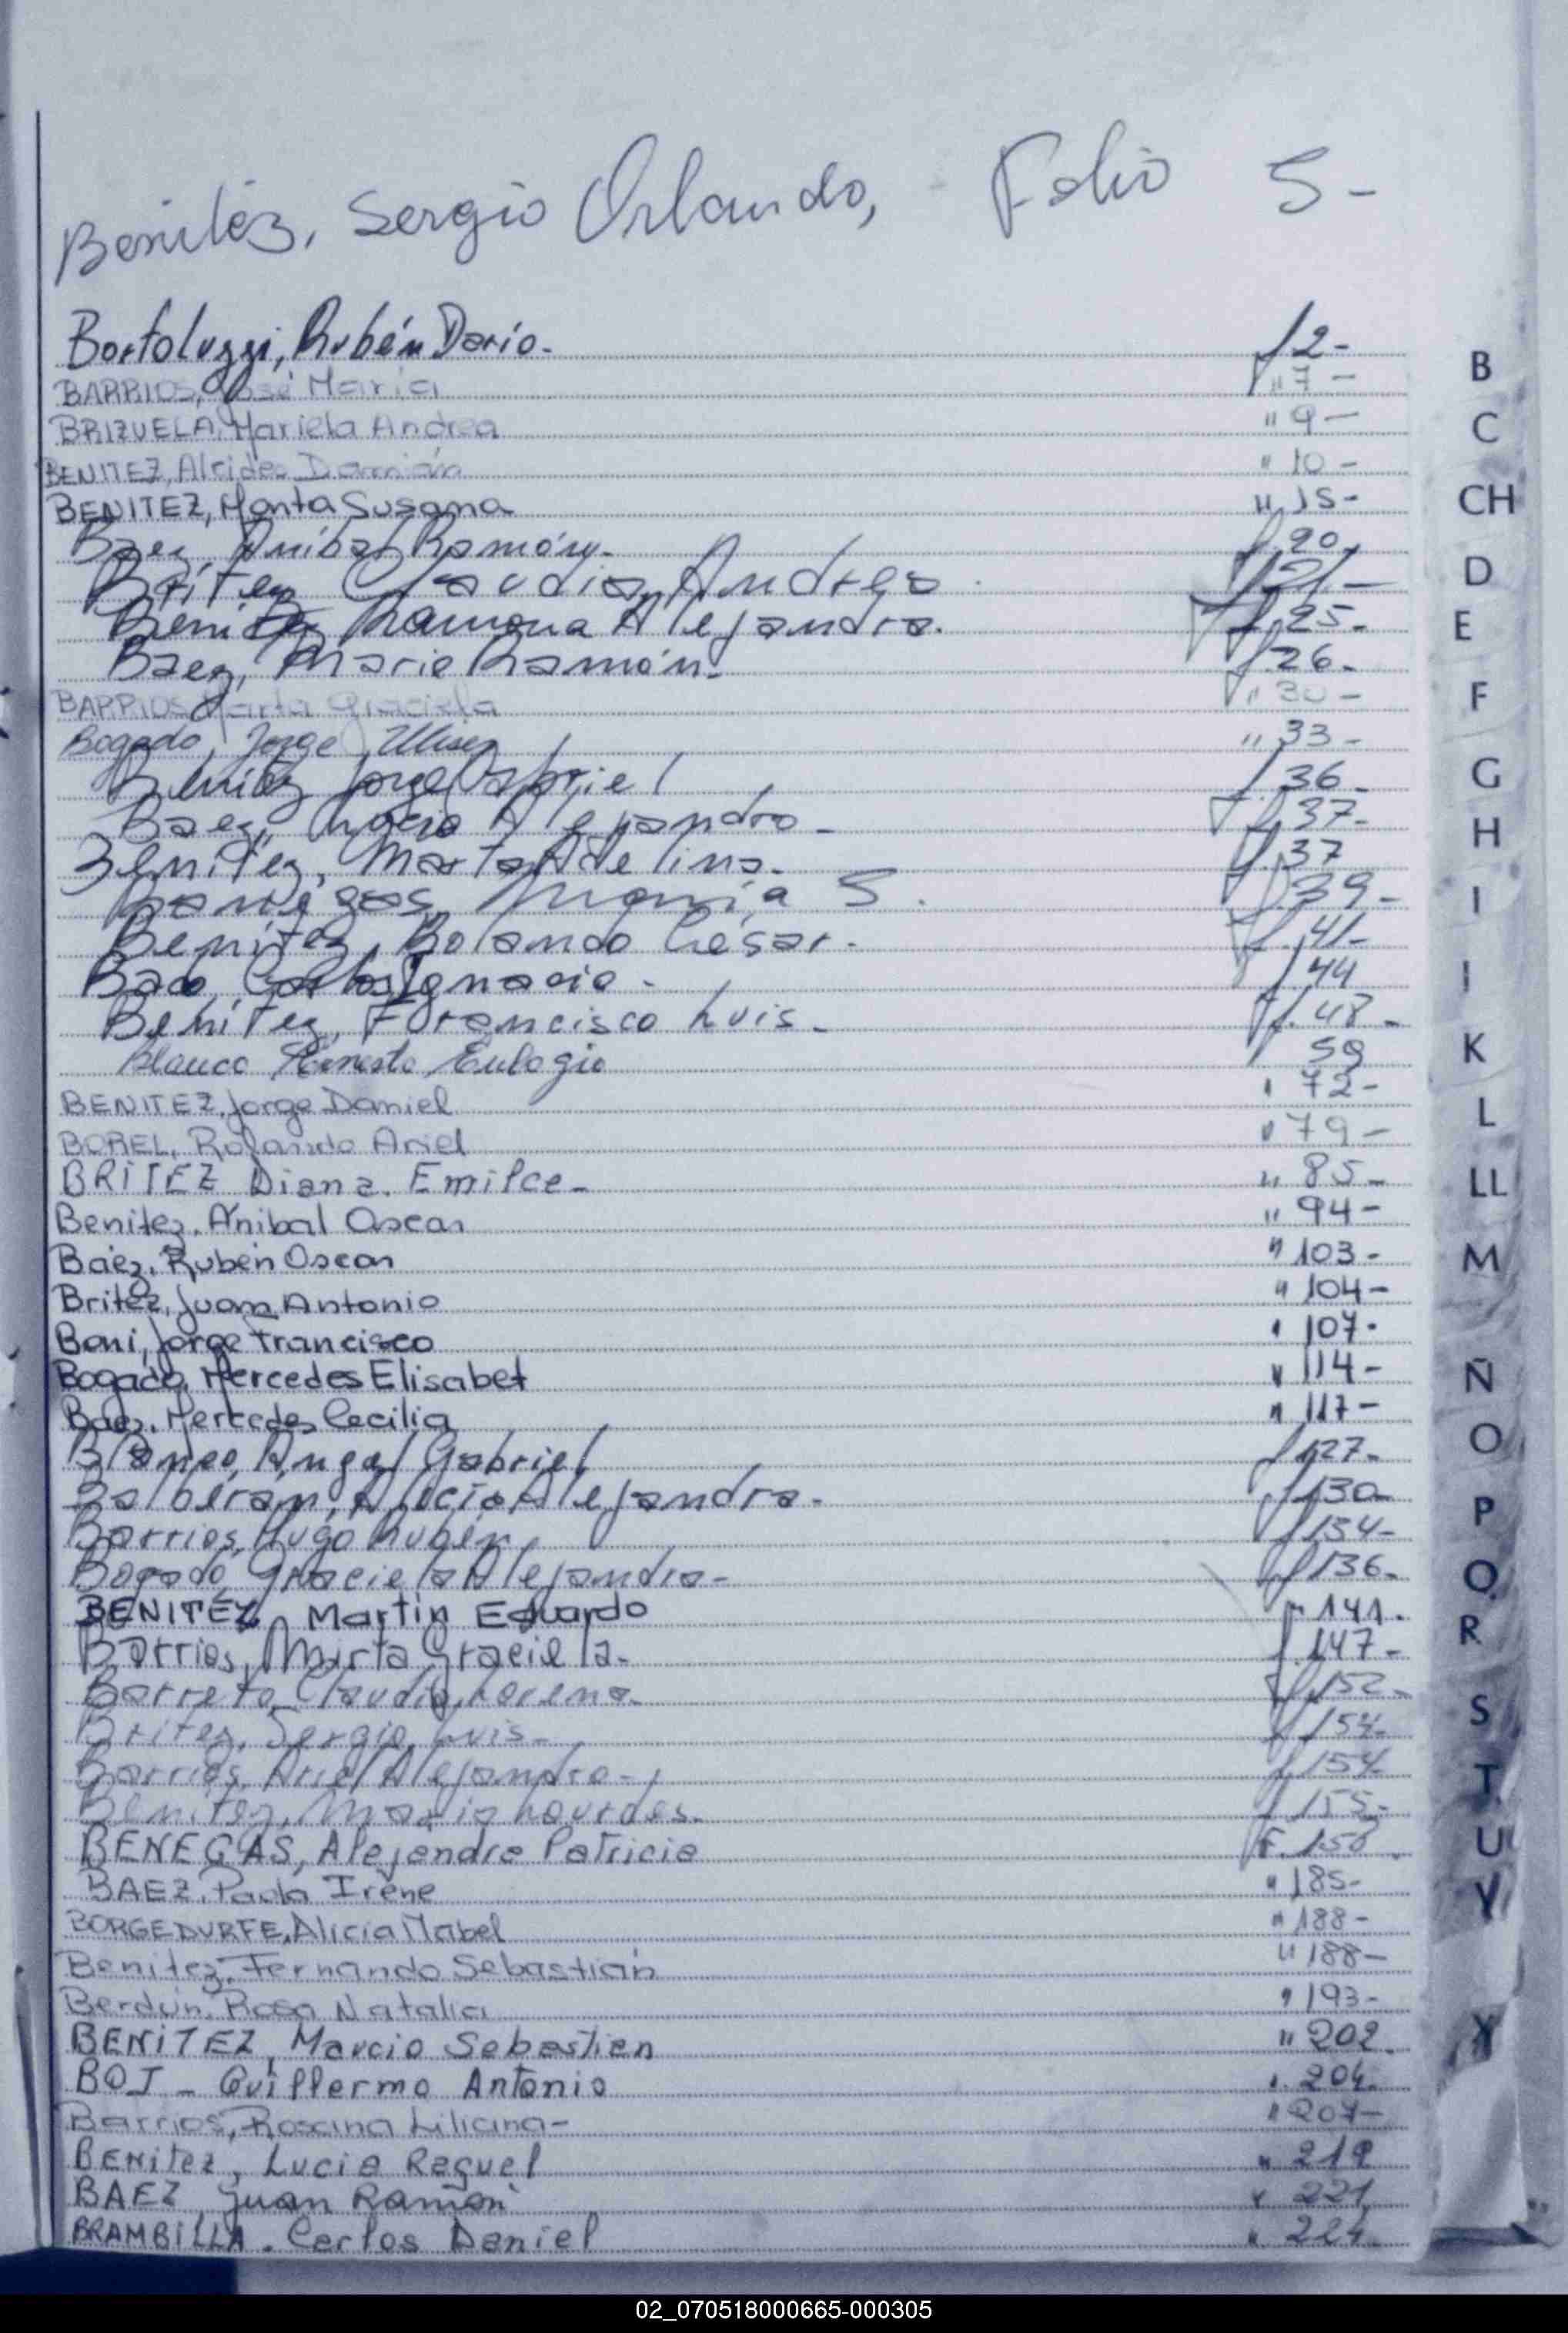 Benitez, Sergio Orlando, Folio 5-
Bortoluzzi, Rubén Darío. f 2-
BARRIOS, José María " 7 -
BRIZUELA, Mariela Andrea " 9 -
BENITEZ, Alcides Damián " 10 -
BENITEZ, Marta Susana " 15-
Baez, Anibal Ramón. f. 20,
Britez Claudia Andrea f. 21-
Benitez Ramona Alejandra. f. 25-
Baez, Mario Ramón. f. 26-
BARRIOS, Marta Graciela " 30 -
Bogado, Jorge Ulises " 33 -
Benitez Jorge Gabriel f 36-
Baez, Rocío Alejandra- f. 37-
Benitez, Marta Adelina. f. 37
S. f. 39-
Benitez, Rolando César. f. 41-
Carlos Ignacio - f. 44
Benitez, Francisco Luis - f. 48 -
Blanco Ernesto Eulogio 59
BENITEZ, Jorge Daniel " 72-
BOREL, Rolando Ariel " 79 -
BRITEZ Diana. Emilce- " 85-
Benitez. Anibal Oscar " 94-
Baéz. Rubén Oscar " 103-
Britez, Juan Antonio " 104-
Boni, Jorge Francisco " 107-
Bogado, Mercedes Elisabet " 114-
Baez. Mercedes Cecilia " 117-
Blanco, Angel Gabriel f 127-
Alejandra- f 130-
Barrios, Hugo Rubén f. 134-
Bogado, Graciela Alejandra- f 136-
BENITEZ, Martin Eduardo " 141.
Barrios, Mirta Graciela- f. 147-
Barreto Claudia Lorena- f. 152-
Britez, Sergio Luis- f 154-
Barrios, Ariel Alejandro- f 154-
Benitez, María Lourdes- f 155-
BENEGAS, Alejandra Patricia F. 158
BAEZ. Paola Irene " 185-
BORGEDURFE, Alicia Mabel " 188-
Benitez. Fernando Sebastián " 188-
Berdún. Rosa Natalia " 193-
BENITEZ, Marcio Sebastian " 202
BOJ - Guillermo Antonio " 204-
Barrios, Rosana Liliana- " 207-
BENitez, Lucia Raquel " 219
BAEZ Juan Ramón " 221
BRAMBILLA. Carlos Daniel " 224
B
C
CH
D
E
F
G
H
I
J
K
L
LL
M
Ñ
O
P
Q
R
S
T
U
V
Y
02_070518000665-000305